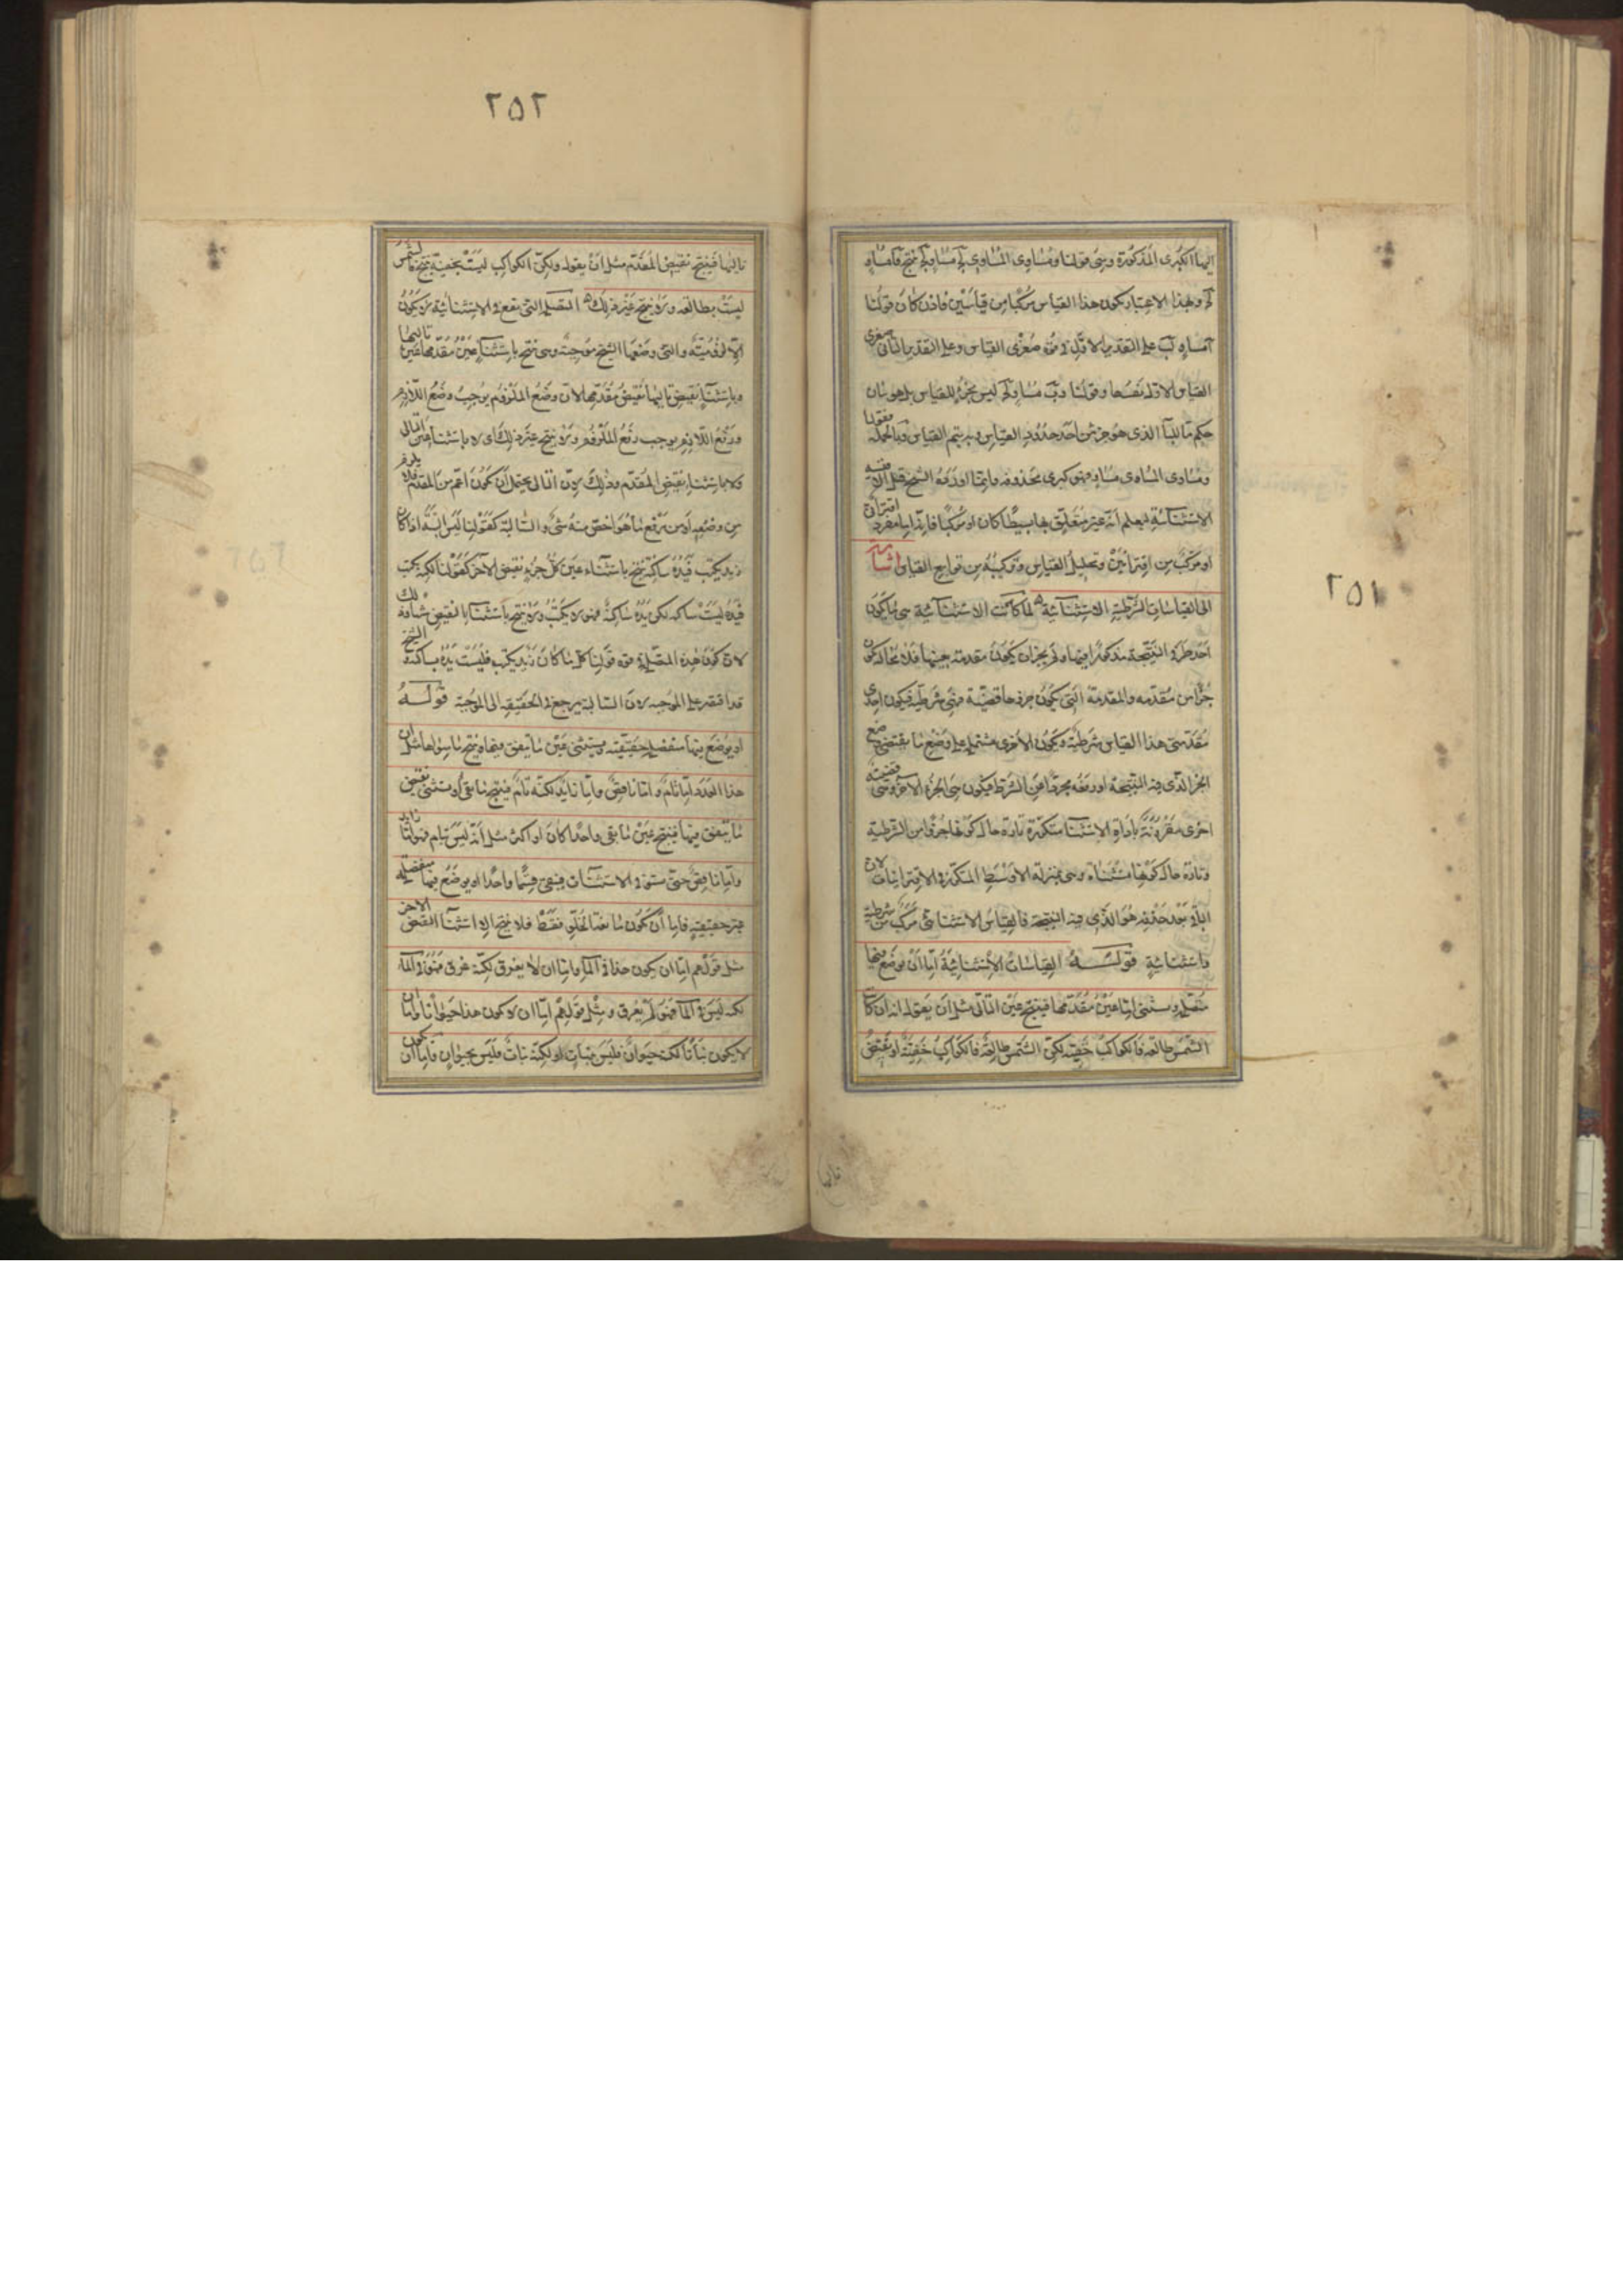 ٢٥١
اليها الكبرى المذكورة وهى قولنا ومساوى المساوى لج مساو لج ينتج فا مساو
لج ولهذا الاعتبار يكون هذا القياس مركبا من قياسين فاذن كان قولنا
آ مساو لب على التقدير الاول فى قوة صغرى القياس وعلى التقدير الثانى صغرى
القياس الاول نفسها وقولنا وب مساو لج ليس بجزء للقياس بل هو بيان
حكم ما للبا الذى هو جزء من احد حدود القياس وبه يتم القياس وبالجملة مقولنا
ومساوى المساوى مساو فهو كبرى محذوفه وانما اورده الشيخ قبل الاقيسه
الاستثنائية ليعلم انه غير متعلق بها بسيطا كان او مركبا فانه اما مفرد اقترانى
او مركب من اقترانين وتحليل القياس وتركيبه من توابع القياس اشارة
الى القياسات الشرطية الاستثنائية لما كانت الاستثنائية هى ما يكون
احد طرفى النتيجة مذكورا فيها ولم يجز ان يكون مقدمة بعينها فلا محالة يكون
جزا من مقدمه والمقدمة التى يكون جزوها قضية فهى شرطية فيكون احدى
مقدمتى هذا القياس شرطية ويكون الاخرى مشتملة على وضع ما يقتضى وضع
الجزء الذى فيه النتيجة او رفعه مجردا من الشرط فيكون هى الجزء الآخر وهى قضية
اخرى مقرونة باداة الاستثنا متكررة تارة حال كونها جزوا من الشرطية
وتارة حال كونها مستثناة وهى بمنزلة الاوسط المتكرر فى الاقترانيات لان
الباقى بعد حذفه هو الذى فيه النتيجة فالقياس الاستثنائى مركب من شرطية
واستثنائية قوله القياسات الاستثنائية اما ان يوضع فيها
متصلة ويستثنى اما عين مقدمها فينتج عين التالى مثل ان يقول انه ان كان
الشمس طالعه فالكواكب خفيه لكن الشمس طالعة فالكواكب خفية او نقيض
تاليها
٢٥٢
تاليها فينتج نقيض المقدم مثل ان يقول ولكن الكواكب ليست بخفية ينتج فالشمس
ليست بطالعه ولا ينتج غير ذلك المتصلة التى يقع فى الاستثنائية لا يكون
الا لزومية والتى وضعها الشيخ موجبة وهى ينتج باستثناء عين مقدمها عين تاليها
وباستثناء نقيض تاليها نقيض مقدمها لان وضع الملزوم يوجب وضع اللازم
ورفع اللازم يوجب رفع الملزوم ولا ينتج غير ذلك اى لا باستثناء عين التالى
ولا باستثناء نقيض المقدم وذلك لان التالى يحتمل ان يكون اعم من المقدم فلا يلزم
من وضعه او من رفع ما هو اخص منه شئ والسالبة كقولنا ليس البتة اذا كان
زيد يكتب فيده ساكنة ينتج باستثناء عين كل جزء نقيض الآخر كقولنا لكنه يكتب
فيده ليست ساكنه لكن يده ساكنة فهو لا يكتب ولا ينتج باستثناء النقيض شيئا وذلك
لان كون هذه المتصلة فى قوة قولنا كل ما كان زيد يكتب فليست يده بساكنة والشيخ
قد اقتصر على الموجبة لان السالبة يرجع فى الحقيقة الى الموجبة قوله
او يوضع فيها منفصلة حقيقية ويستثنى عين ما يتفق فيها فينتج ما سواها مثل ان
هذا العدد اما تام واما ناقص واما زايد لكنه تام فينتج نقيض ما بقى او يستثنى نقيض
ما يتفق فيها فينتج عين ما بقى واحدا كان او اكثر مثل انه ليس بتام فهو اما زايد
واما ناقص حتى يستوفى الاستثنات فيبقى قسما واحدا او يوضع فيها منفصلة
غير حقيقية فاما ان يكون مانعة الخلو فقط فلا ينتج الا استثنا النقيض الاخر
مثل قولهم اما ان يكون هذا فى الماء واما ان لا يغرق لكنه غرق فهو فى الماء
لكنه ليس فى الماء فهو لم يغرق ومثل قولهم اما ان لا يكون هذا حيوانا واما ان
لا يكون نباتا لكنه حيوان فليس بنبات او لكنه نبات فليس بحيوان فاما ان يكون